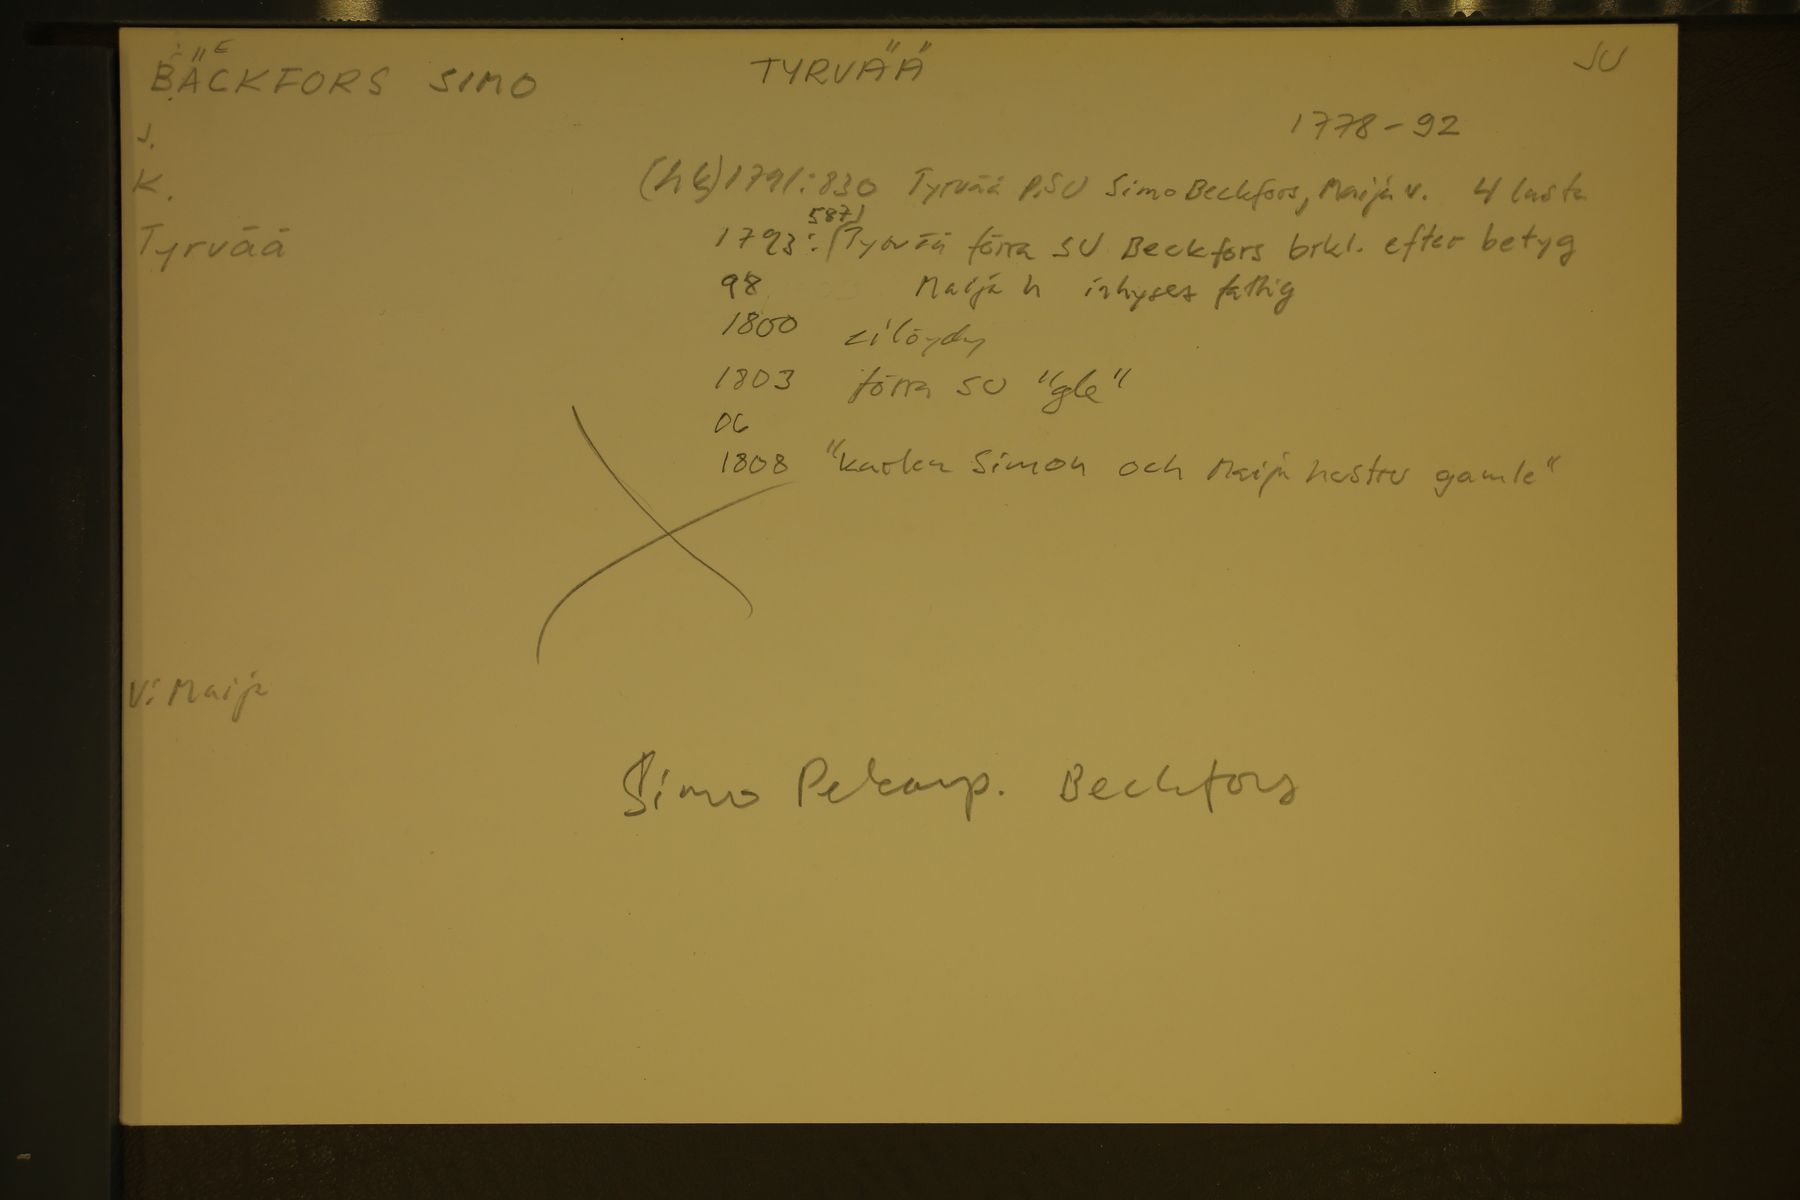 BÄCKFORS SIMO TYRVÄÄ SU
E
1778-92
J.
K.
(hk) 1791:830 Tyrvää PiSU Simo Beckfors, Maija v. 4 lasta
Tyrvää
1793:587) Tyrvää förra SU Beckfors brkl. efter betyg
98 Maija h inhyses fattig
1800 ei löydy
1803 förra SU "gle"
06
1808 "karlen Simon och Maija hustru gamle"
V: Maija
Simo Pekanp. Beckfors